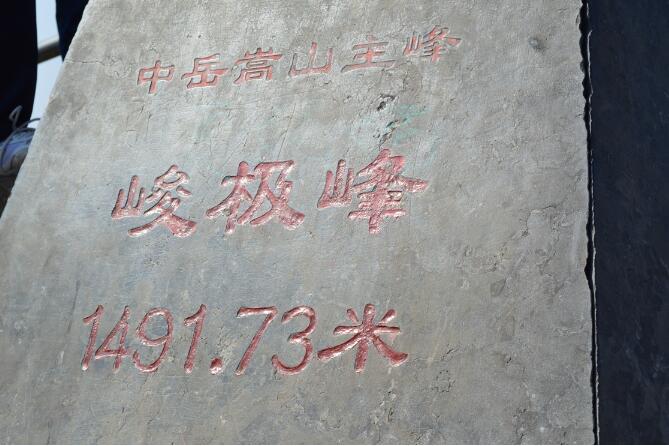 中岳嵩山主峰
峻极峰
1491.73米